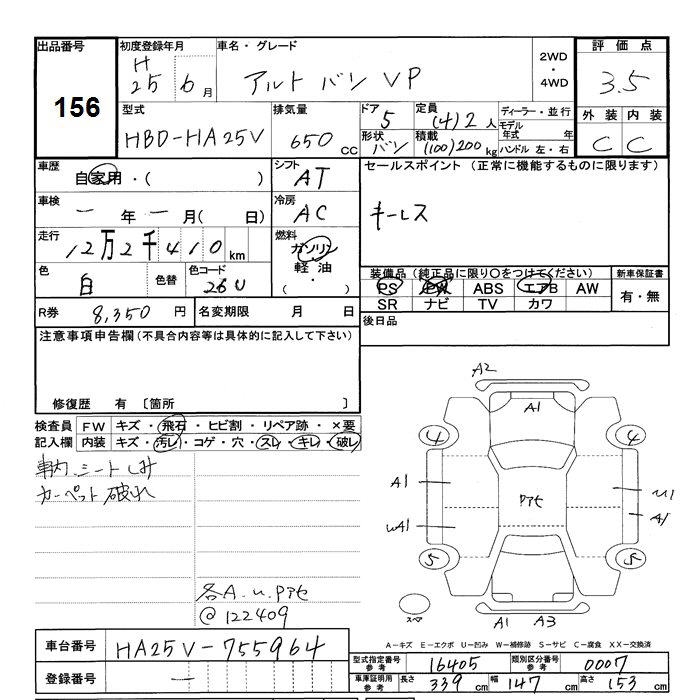 出品番号
156
初度登録年月
H
25 6月
車名・グレード
アルト バン VP
2WD
・
4WD
評価点
3.5
型式
HBD-HA25V
排気量
650 cc
ドア
5
形状
バン
定員
(4)2 人
積載
(100)200 kg
ディーラー・並行
モデル
年式 年
ハンドル 左・右
外装 内装
C C
車歴
自家用・( )
シフト
AT
セールスポイント (正常に機能するものに限ります)
キーレス
車検
一 年 一 月( 日)
冷房
AC
走行
12万2千410 km
燃料
ガソリン
軽油
( ・ )
色
白
色替
色コード
26U
装備品 (純正品に限り○をつけてください)
PS PW ABS エアB AW
SR ナビ TV カワ
新車保証書
有・無
R券 8,350 円
名変期限 月 日
後日品
注意事項申告欄(不具合内容等は具体的に記入して下さい)
修復歴 有 〔箇所 〕
検査員
記入欄
FW キズ・飛石・ヒビ割・リペア跡・×要
内装 キズ・汚レ・コゲ・穴・スレ・キレ・破レ
車内シートしみ
カーペット破れ
各A.u.Pアセ
@122409
A2
A1
4 4
A1
Pアセ
u1
uA1
A1
5 5
スペア
A1 A3
A-キズ E-エクボ U-凹み W-補修跡 S-サビ C-腐食 XX-交換済
車台番号 HA25V-755964
登録番号 —
型式指定番号
参考
16405
類別区分番号
参考
0007
車庫証明用
参考
長さ 339 cm 幅 147 cm 高さ 153 cm